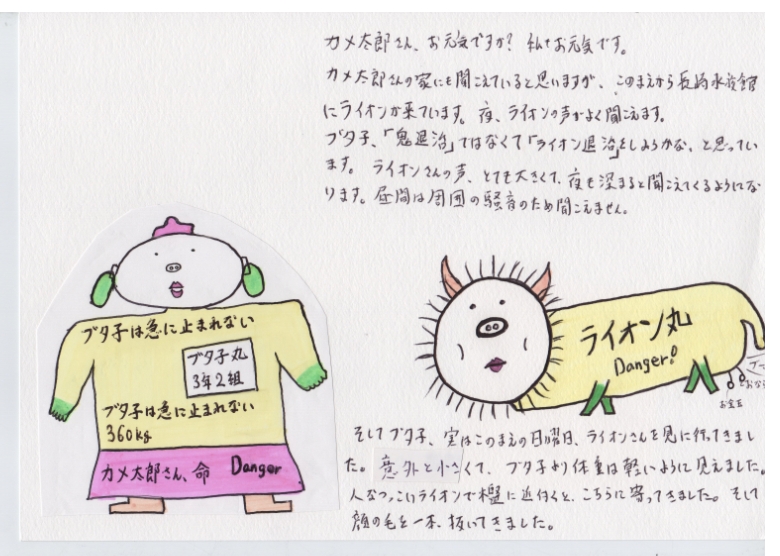 カメ太郎さん、お元気ですか? 私もお元気です。
カメ太郎さんの家にも聞こえていると思いますが、このまえから長崎水族館
にライオンが来ています。夜、ライオンの声がよく聞こえます。
ブタ子、「鬼退治」ではなくて「ライオン退治」をしようかな、と思ってい
ます。ライオンさんの声、とても大きくて、夜も深まると聞こえてくるようにな
ります。昼間は周囲の騒音のため聞こえません。
ブタ子は急に止まれない
ブタ子丸
3年2組
ブタ子は急に止まれない
360kg
カメ太郎さん、命 Danger
ライオン丸
Danger!
お宝玉
そしてブタ子、実はこのまえの日曜日、ライオンさんを見に行ってきまし
た。意外と小さくて、ブタ子より体重は軽いように見えました。
人なつっこいライオンで檻に近付くと、こちらに寄ってきました。そして
顔の毛を一本、抜いてきました。